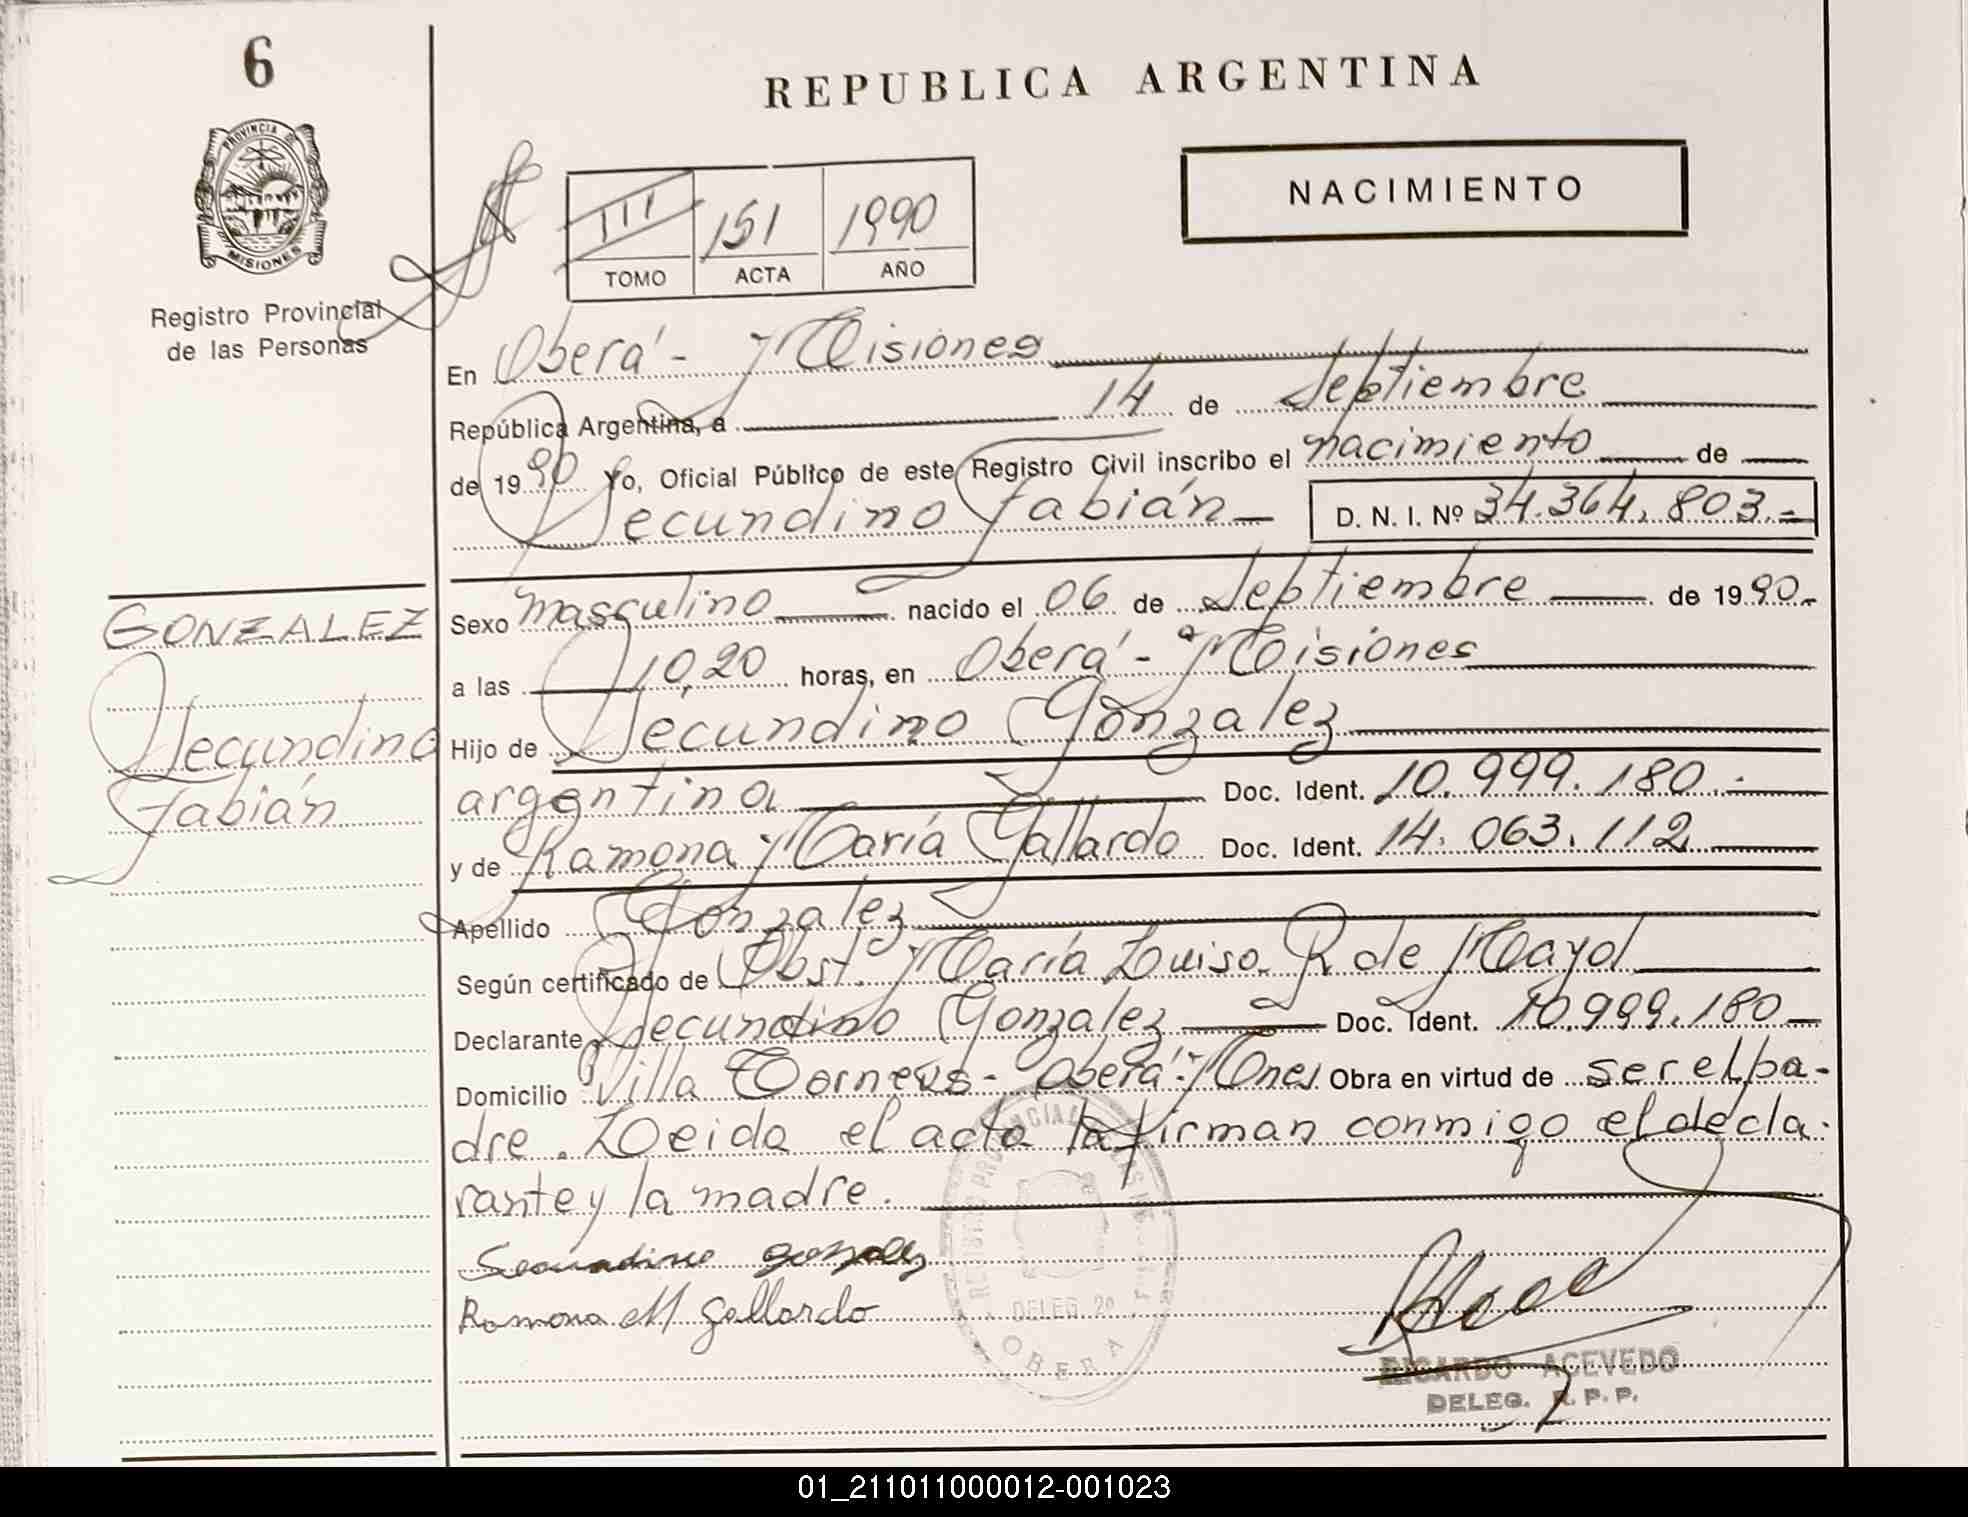 6
REPUBLICA ARGENTINA
PROVINCIA DE
MISIONES
Registro Provincial
de las Personas
III 151 1990
TOMO ACTA AÑO
NACIMIENTO
En Oberá - Misiones
República Argentina, a 14 de Septiembre
de 1990 Yo, Oficial Público de este Registro Civil inscribo el nacimiento de
Secundino Fabián D. N. I. Nº 34.364.803.-
GONZALEZ
Secundino
Fabián
Sexo masculino nacido el 06 de Septiembre de 1990.-
a las 10,20 horas, en Oberá - Misiones
Hijo de Secundino Gonzalez
argentina Doc. Ident. 10.999.180.-
y de Ramona María Gallardo Doc. Ident. 14.063.112
Apellido Gonzalez
Según certificado de Obst. María Luisa R de Mayol
Declarante Secundino Gonzalez Doc. Ident. 10.999.180
Domicilio Villa - Oberá - Mnes. Obra en virtud de ser el pa-
dre. Leida el acta la firman conmigo el decla-
rante y la madre.
Secundino Gonzalez
Ramona M Gallardo
REGISTRO PROVINCIAL DE LAS PERSONAS
DELEG. 2º
OBERA
RICARDO ACEVEDO
DELEG. R. P. P.
01_211011000012-001023